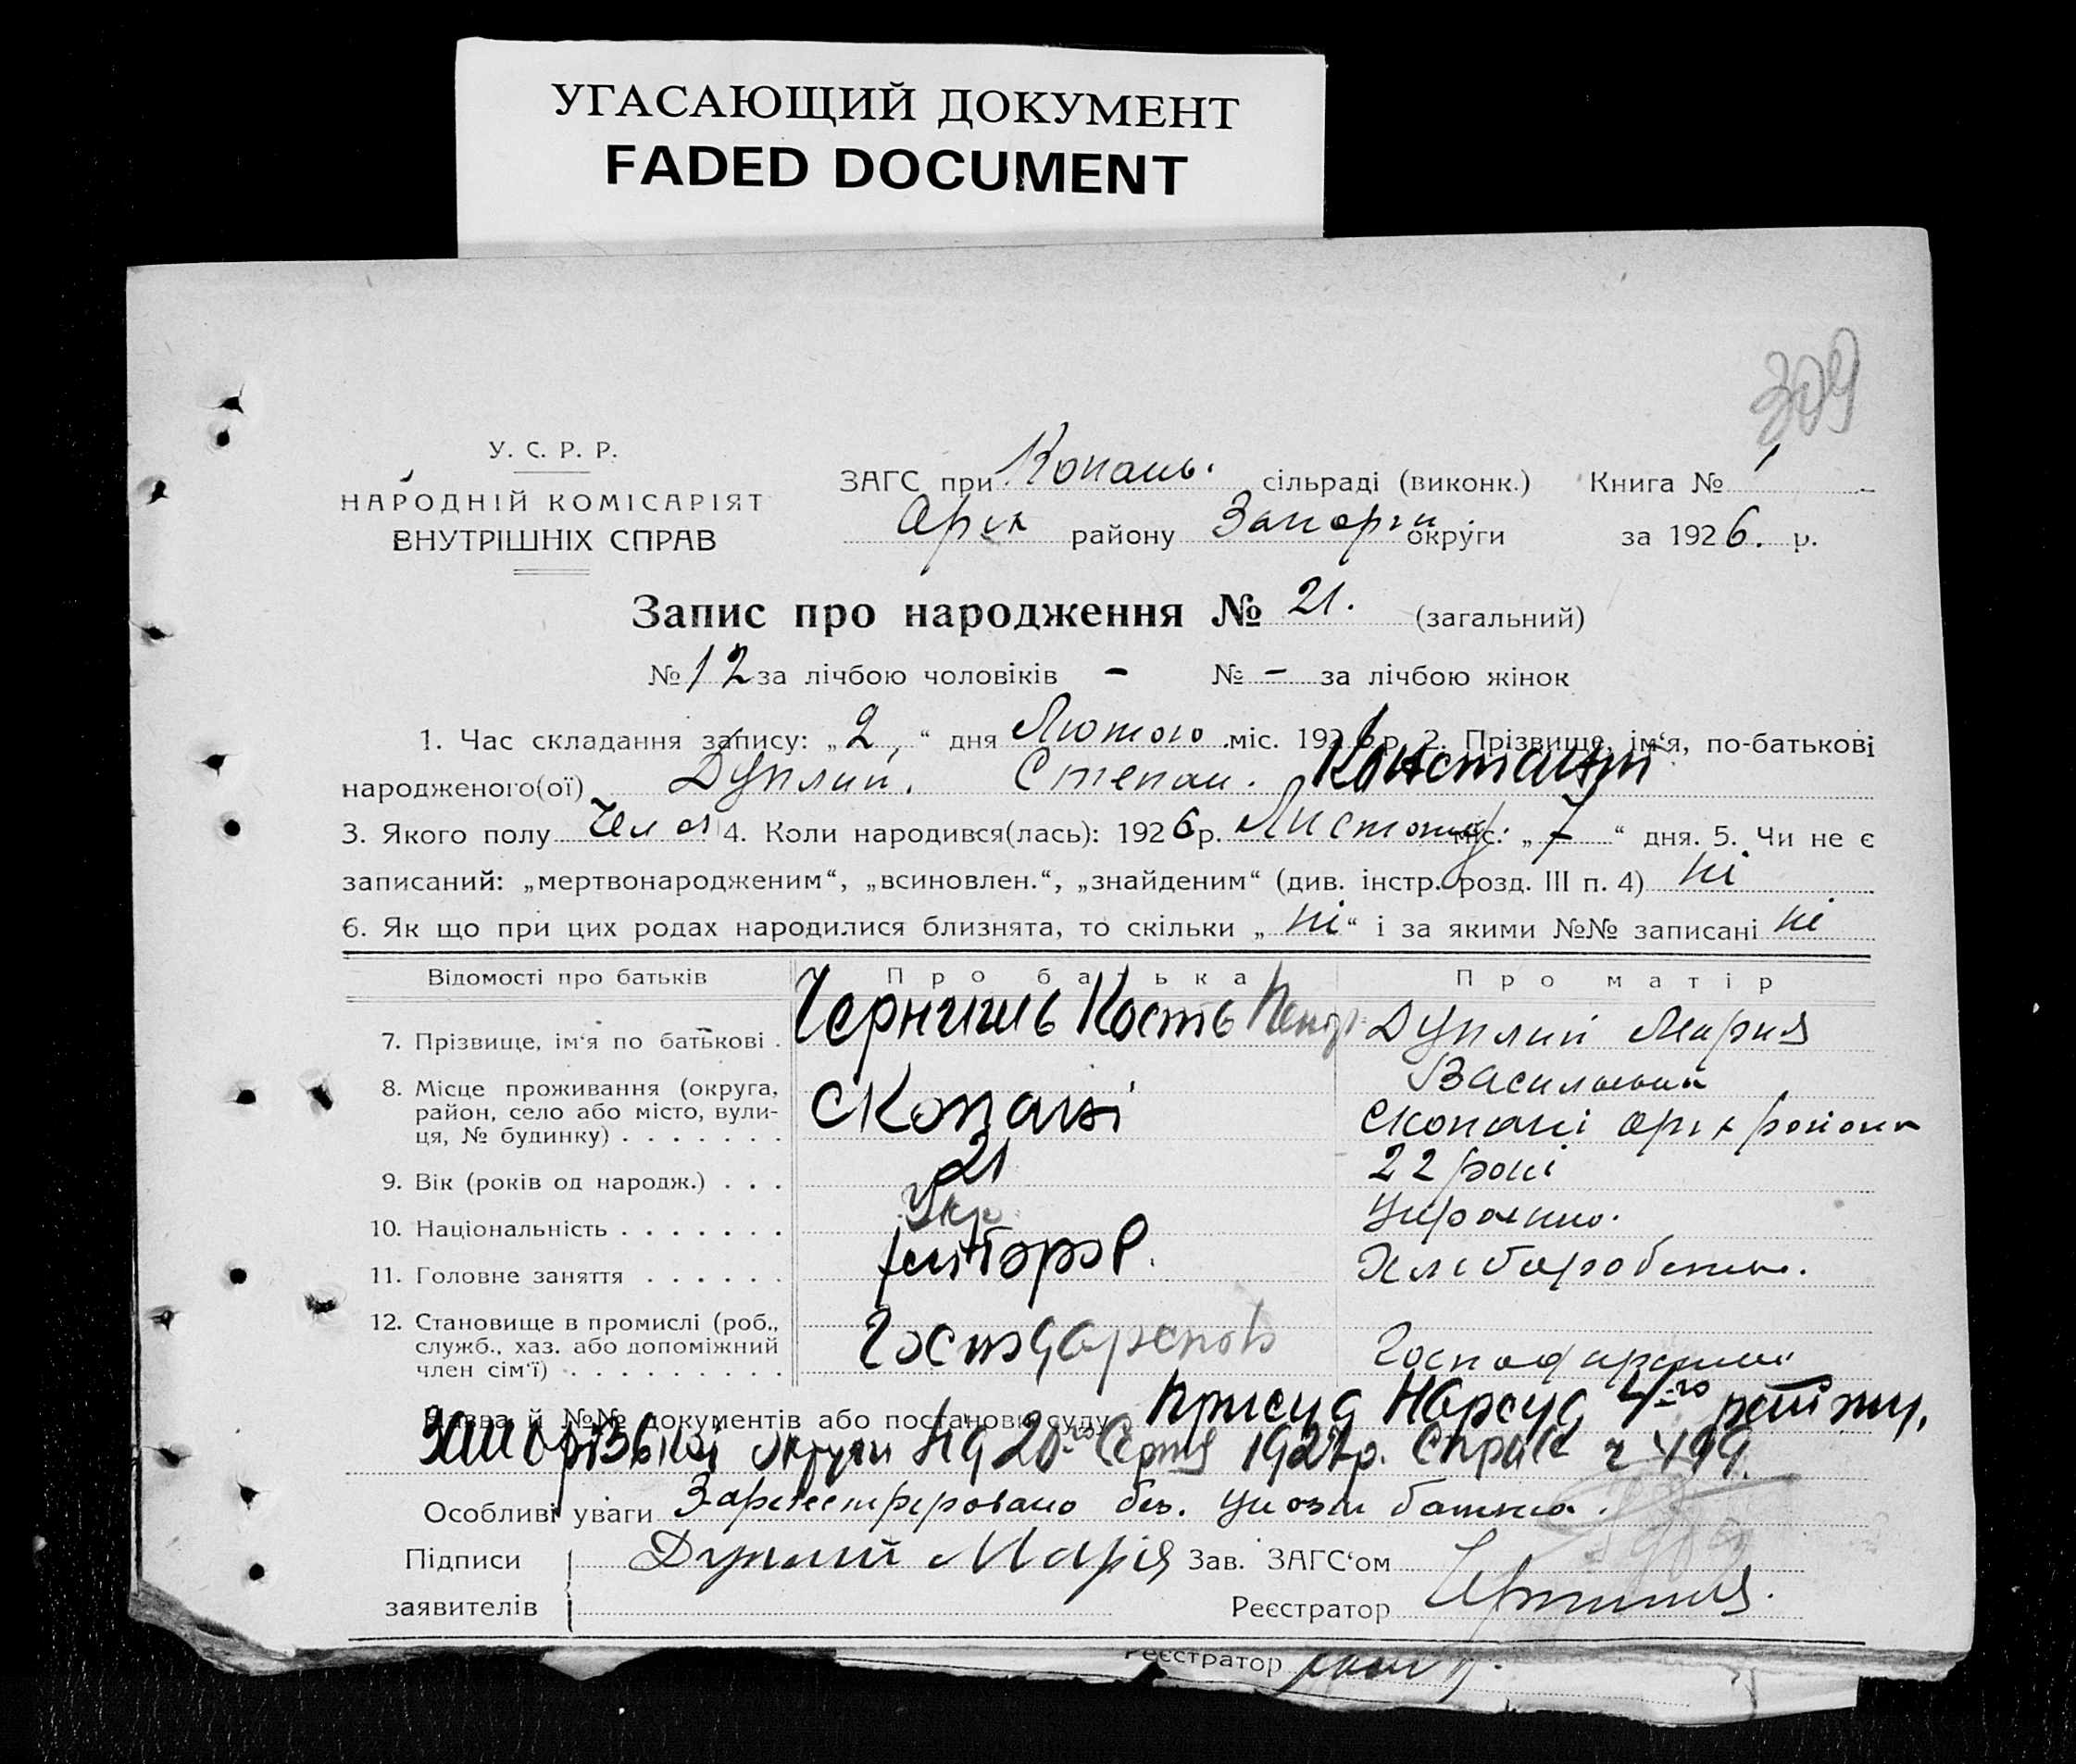 УГАСАЮЩИЙ ДОКУМЕНТ
FADED DOCUMENT
309
У. С. Р. Р.
НАРОДНІЙ КОМІСАРІЯТ
ВНУТРІШНІХ СПРАВ
ЗАГС при Копань. сільраді (виконк.) Книга № 1
Оріх району Запоріз. округи за 1926. р.
Запис про народження № 21. (загальний)
№ 12 за лічбою чоловіків - № - за лічбою жінок
1. Час складання запису: „2“ дня Лютого міс. 1926 р. 2. Прізвище, ім‘я, по-батькові
народженого(ої) Дуплий. Степан. Констант
3. Якого полу Чол 4. Коли народився(лась): 1926 р. Листопад міс. „7“ дня. 5. Чи не є
записаний: „мертвонародженим“, „всиновлен.“, „знайденим“ (див. інстр. розд. III п. 4) ні
6. Як що при цих родах народилися близнята, то скільки „ні“ і за якими №№ записані ні
Відомості про батьків Про батька Про матір
7. Прізвище, ім‘я по батькові . Кость Дуплий Мария
8. Місце проживання (округа, район, село або місто, вулиця, № будинку) . . . . . . . с Копані с Копані Оріх району
9. Вік (років од народж.) . . . 21 22 році
10. Національність . . . . . . . Укр
11. Головне заняття . . . . . . Хліборобство.
12. Становище в промислі (роб., служб., хаз. або допоміжний член сім‘ї) . . . . . . . . .
Назва й №№ документів або постанови суду Присуд Нарсуд 4-го
Запорізької округи від 20-го Серпня 1927р. Справа ч 499.
Особливі уваги Зареєстріровано без. батька.
Підписи Дуплий Марія Зав. ЗАГС‘ом
заявителів Реєстратор
Реєстратор